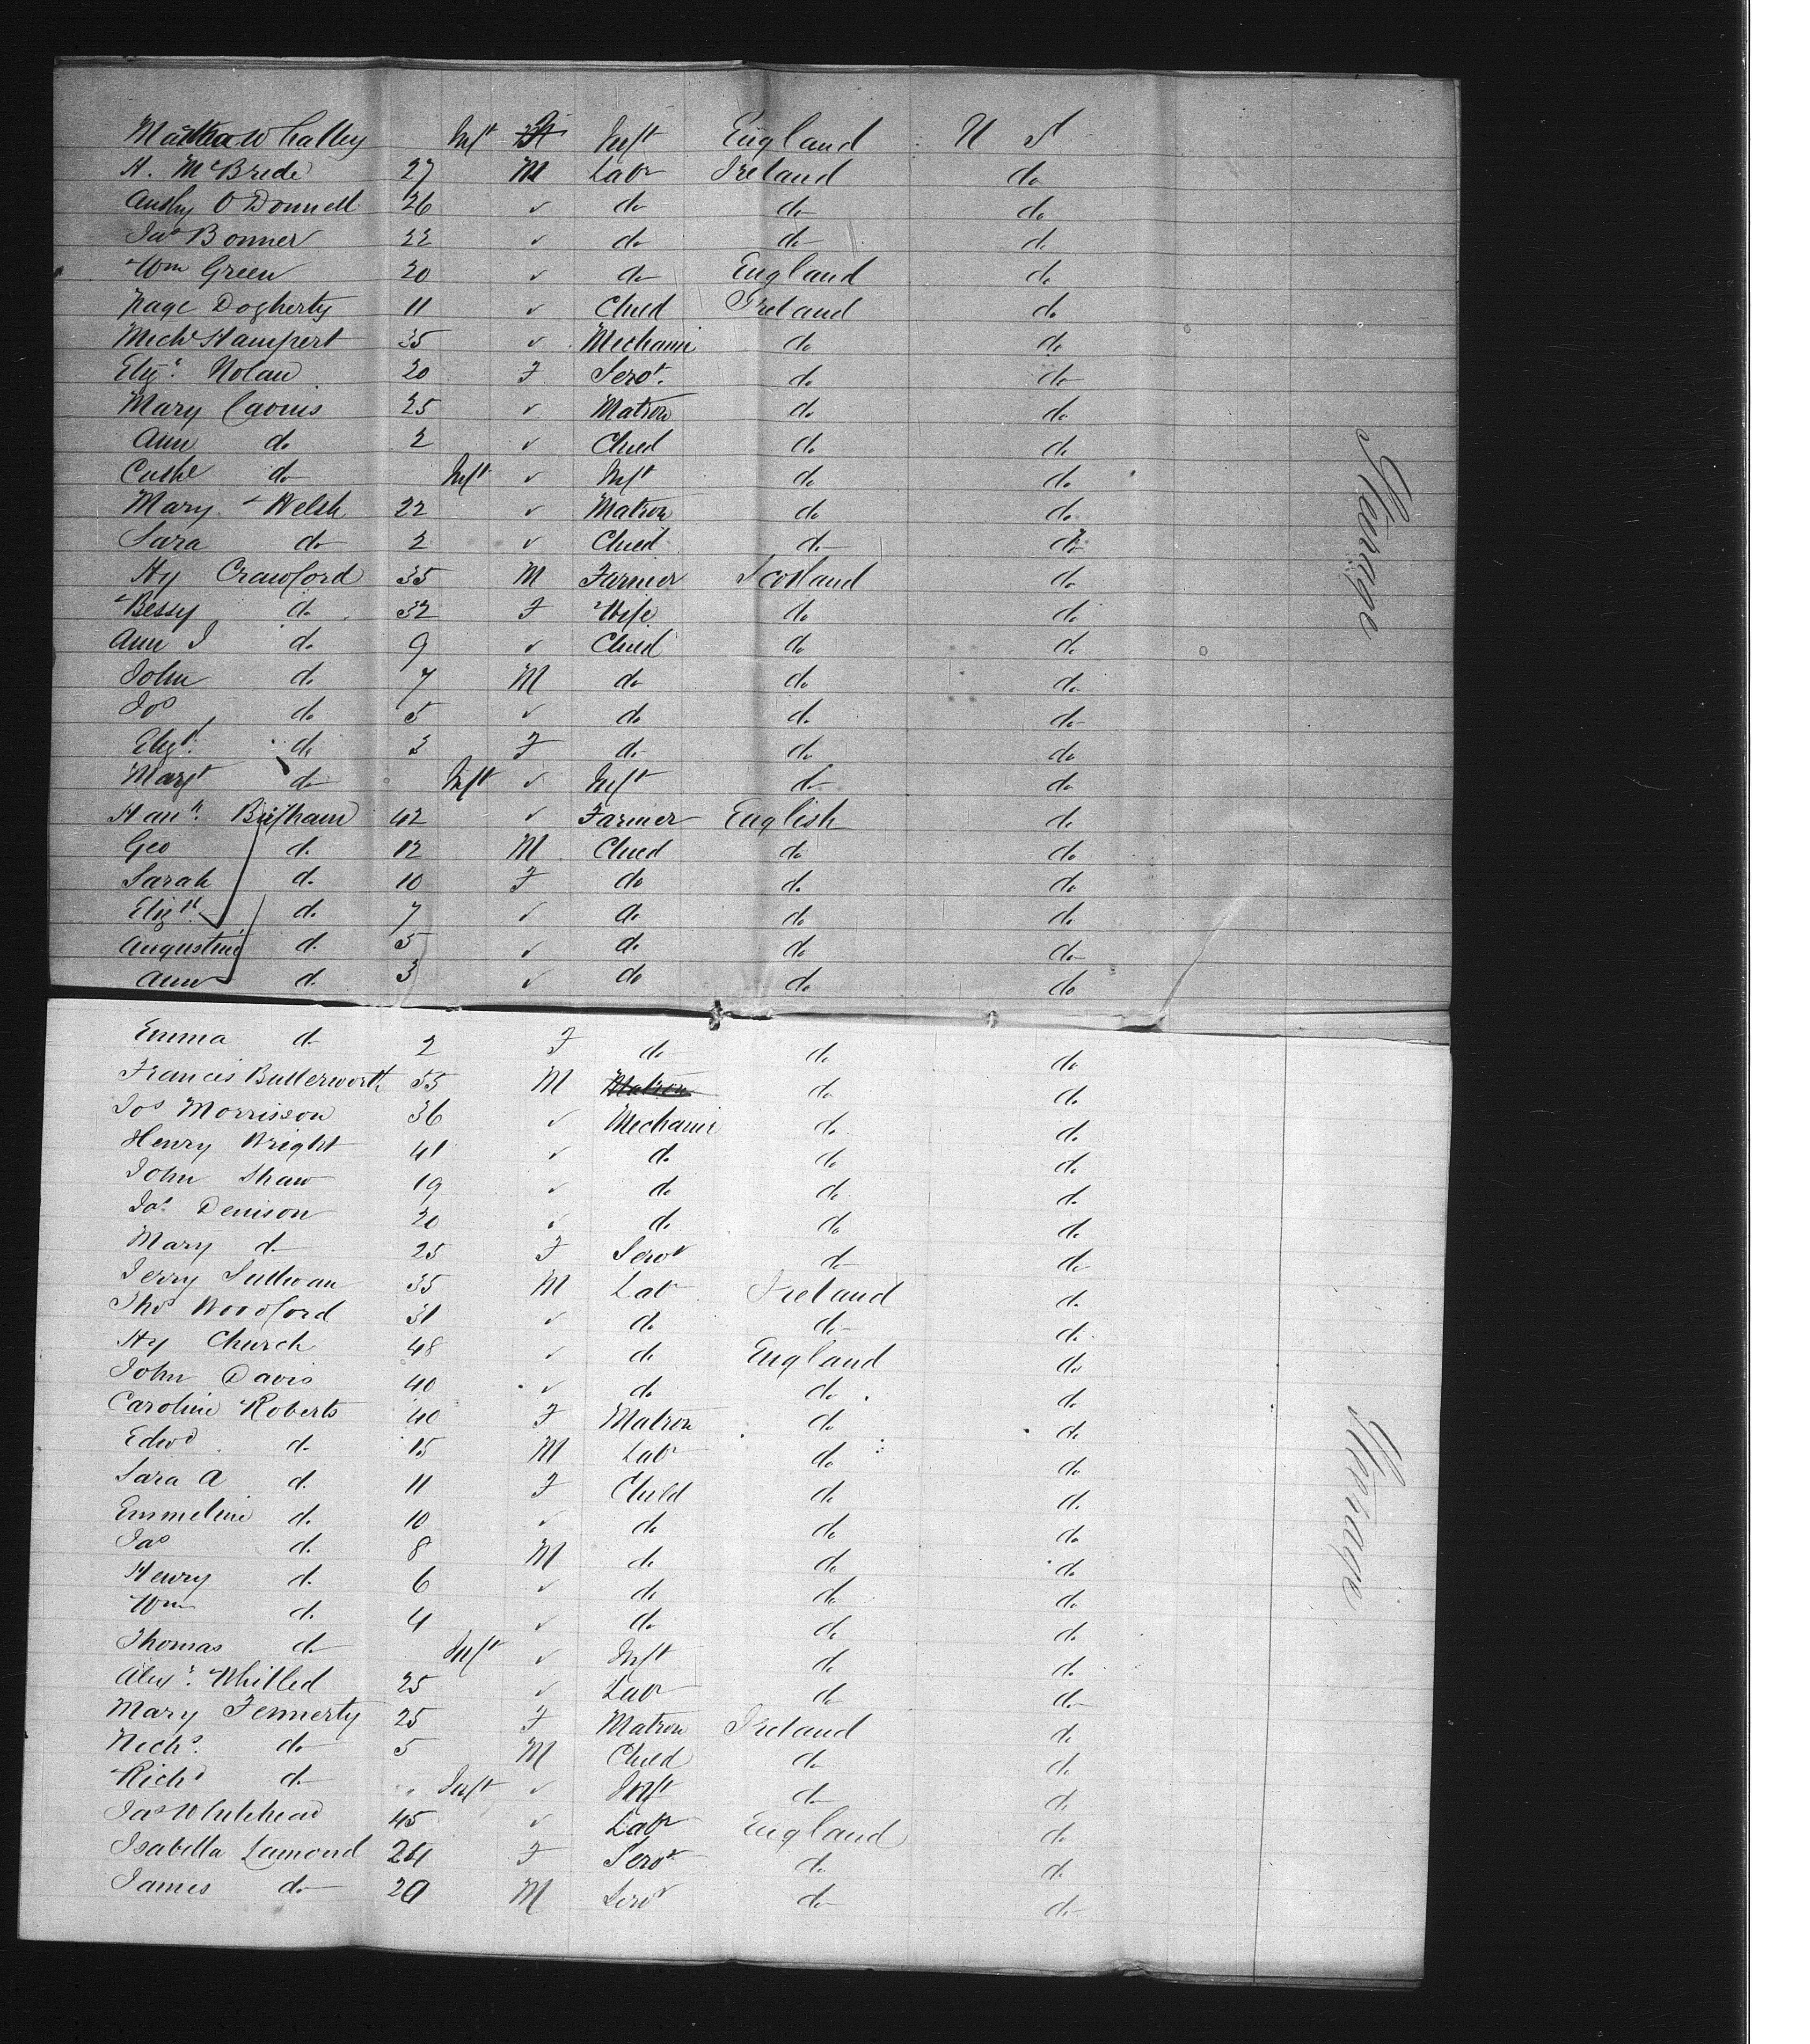 Martha Whalley Inft Inft England U S
H. McBride 27 M Labr Ireland do
Anthy O Donnell 26 ✓ do do do
Jas Bonner 22 ✓ do do do
Wm Green 20 ✓ do England do
Dogherty 11 ✓ Child Ireland do
Michl Hampert 35 ✓ Mechanic do do
Elizh Nolan 20 F Servt. do do
Mary 25 ✓ Matron do do
Ann do 2 ✓ Child do do
Cathe do Inft ✓ Inft do do
Mary Welsh 22 ✓ Matron do do
Sara do 2 ✓ Child do do
Hy Crawford 35 M Farmer Scotland do
Bessy do 32 F Wife do do
Ann J do 9 ✓ Child do do
John do 7 M do do do
Jos do 5 ✓ do do do
Elizh do 3 F do do do
Margt do Inft ✓ Inft do do
Hanh. 42 ✓ Farmer English do
Geo do 12 M Child do do
Sarah do 10 F do do do
Elizh do 7 ✓ do do do
Augustine do 5 ✓ do do do
Ann do 3 ✓ do do do
Steerage
Emma do 2 F do do do
Francis Butterworth 55 M Matron do do
Jos Morrisson 36 ✓ Mechanic do do
Henry Wright 41 ✓ do do do
John Shaw 19 ✓ do do do
Jas Denison 20 ✓ do do do
Mary do 25 F Servt do do
Jerry Sullivan 35 M Labr Ireland do
Thos Woodford 31 ✓ do do do
Hy Church 48 ✓ do England do
John Davis 40 ✓ do do do
Caroline Roberts 40 F Matron do do
Edwd do 15 M Labr do do
Sara A do 11 F Child do do
Emmeline do 10 ✓ do do do
Jas do 8 M do do do
Henry do 6 ✓ do do do
Wm do 4 ✓ do do do
Thomas do Inft ✓ Inft do do
Alexr. Whitled 25 ✓ Labr do do
Mary Fennerty 25 F Matron Ireland do
Nichs. do 5 M Child do do
Richd do Inft ✓ Inft do do
Jas Whitehead 45 ✓ Labr England do
Isabella Lamond 24 F Servt do do
James do 20 M Servt do do
Steerage